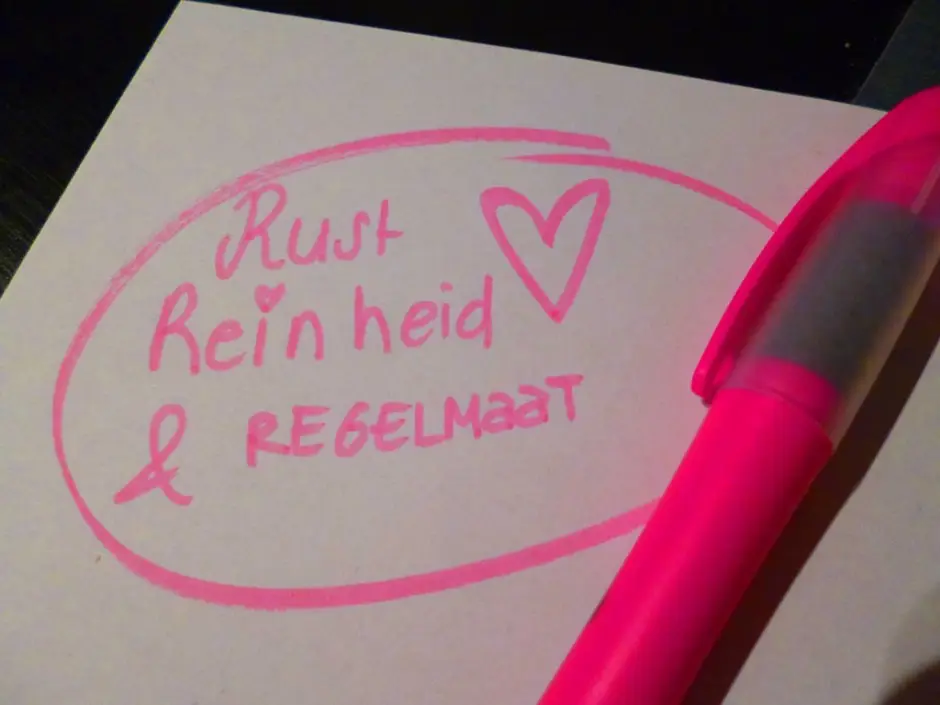 Rust
Reinheid
& REGELMaaT